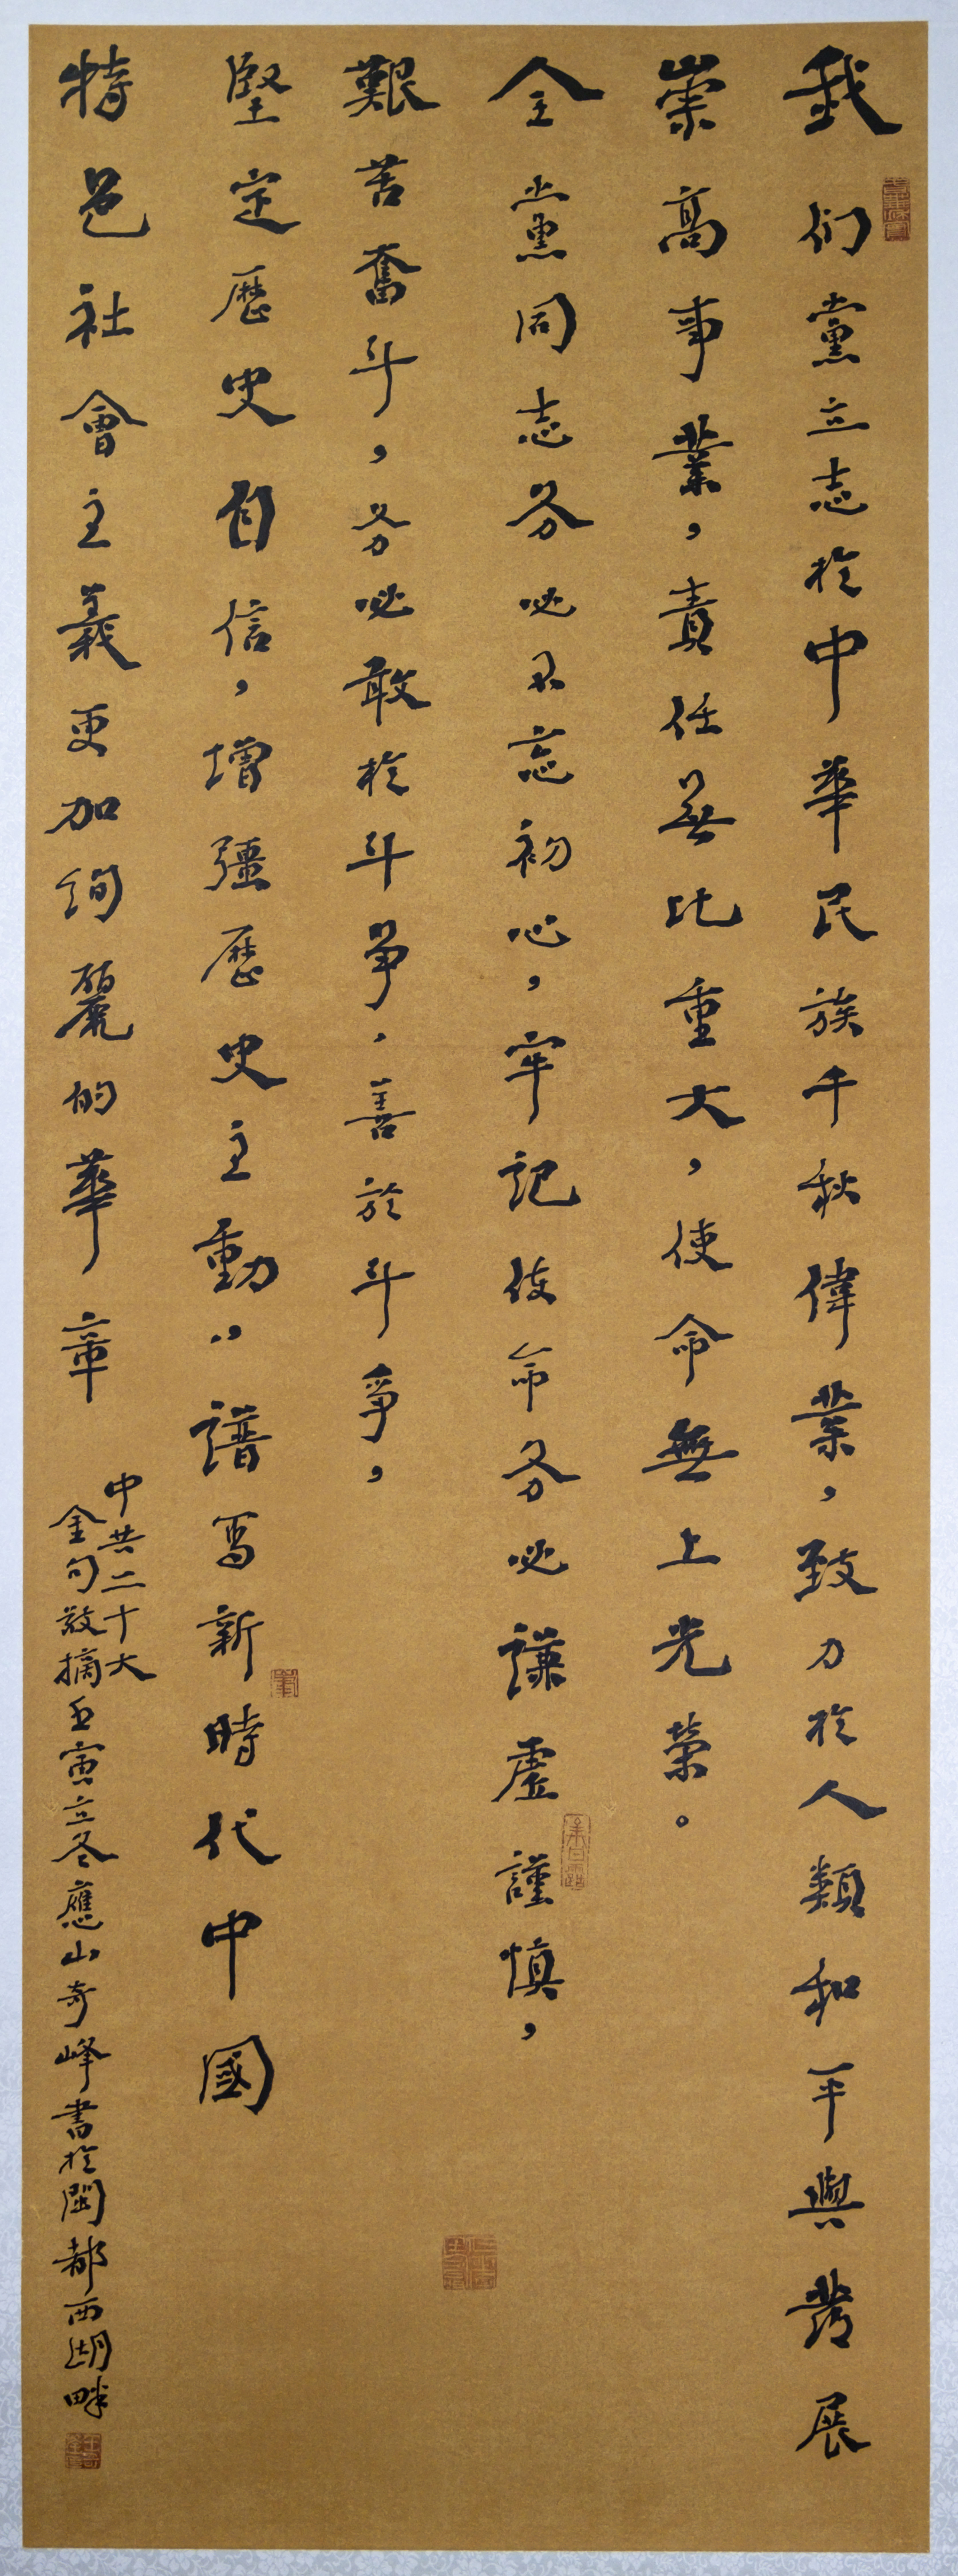 我们黨立志於中華民族千秋偉業，致力於人類和平與發展
崇高事業，責任無比重大，使命無上光榮。
全黨同志务必不忘初心，牢記使命务必謙虛謹慎，
艱苦奮斗，务必敢於斗爭，善於斗爭，
堅定歷史自信，增彊歷史主動，譜寫新時代中國
特色社會主義更加絢麗的華章
中共二十大
金句敬摘壬寅立冬應山奇峰書於閩都西湖畔